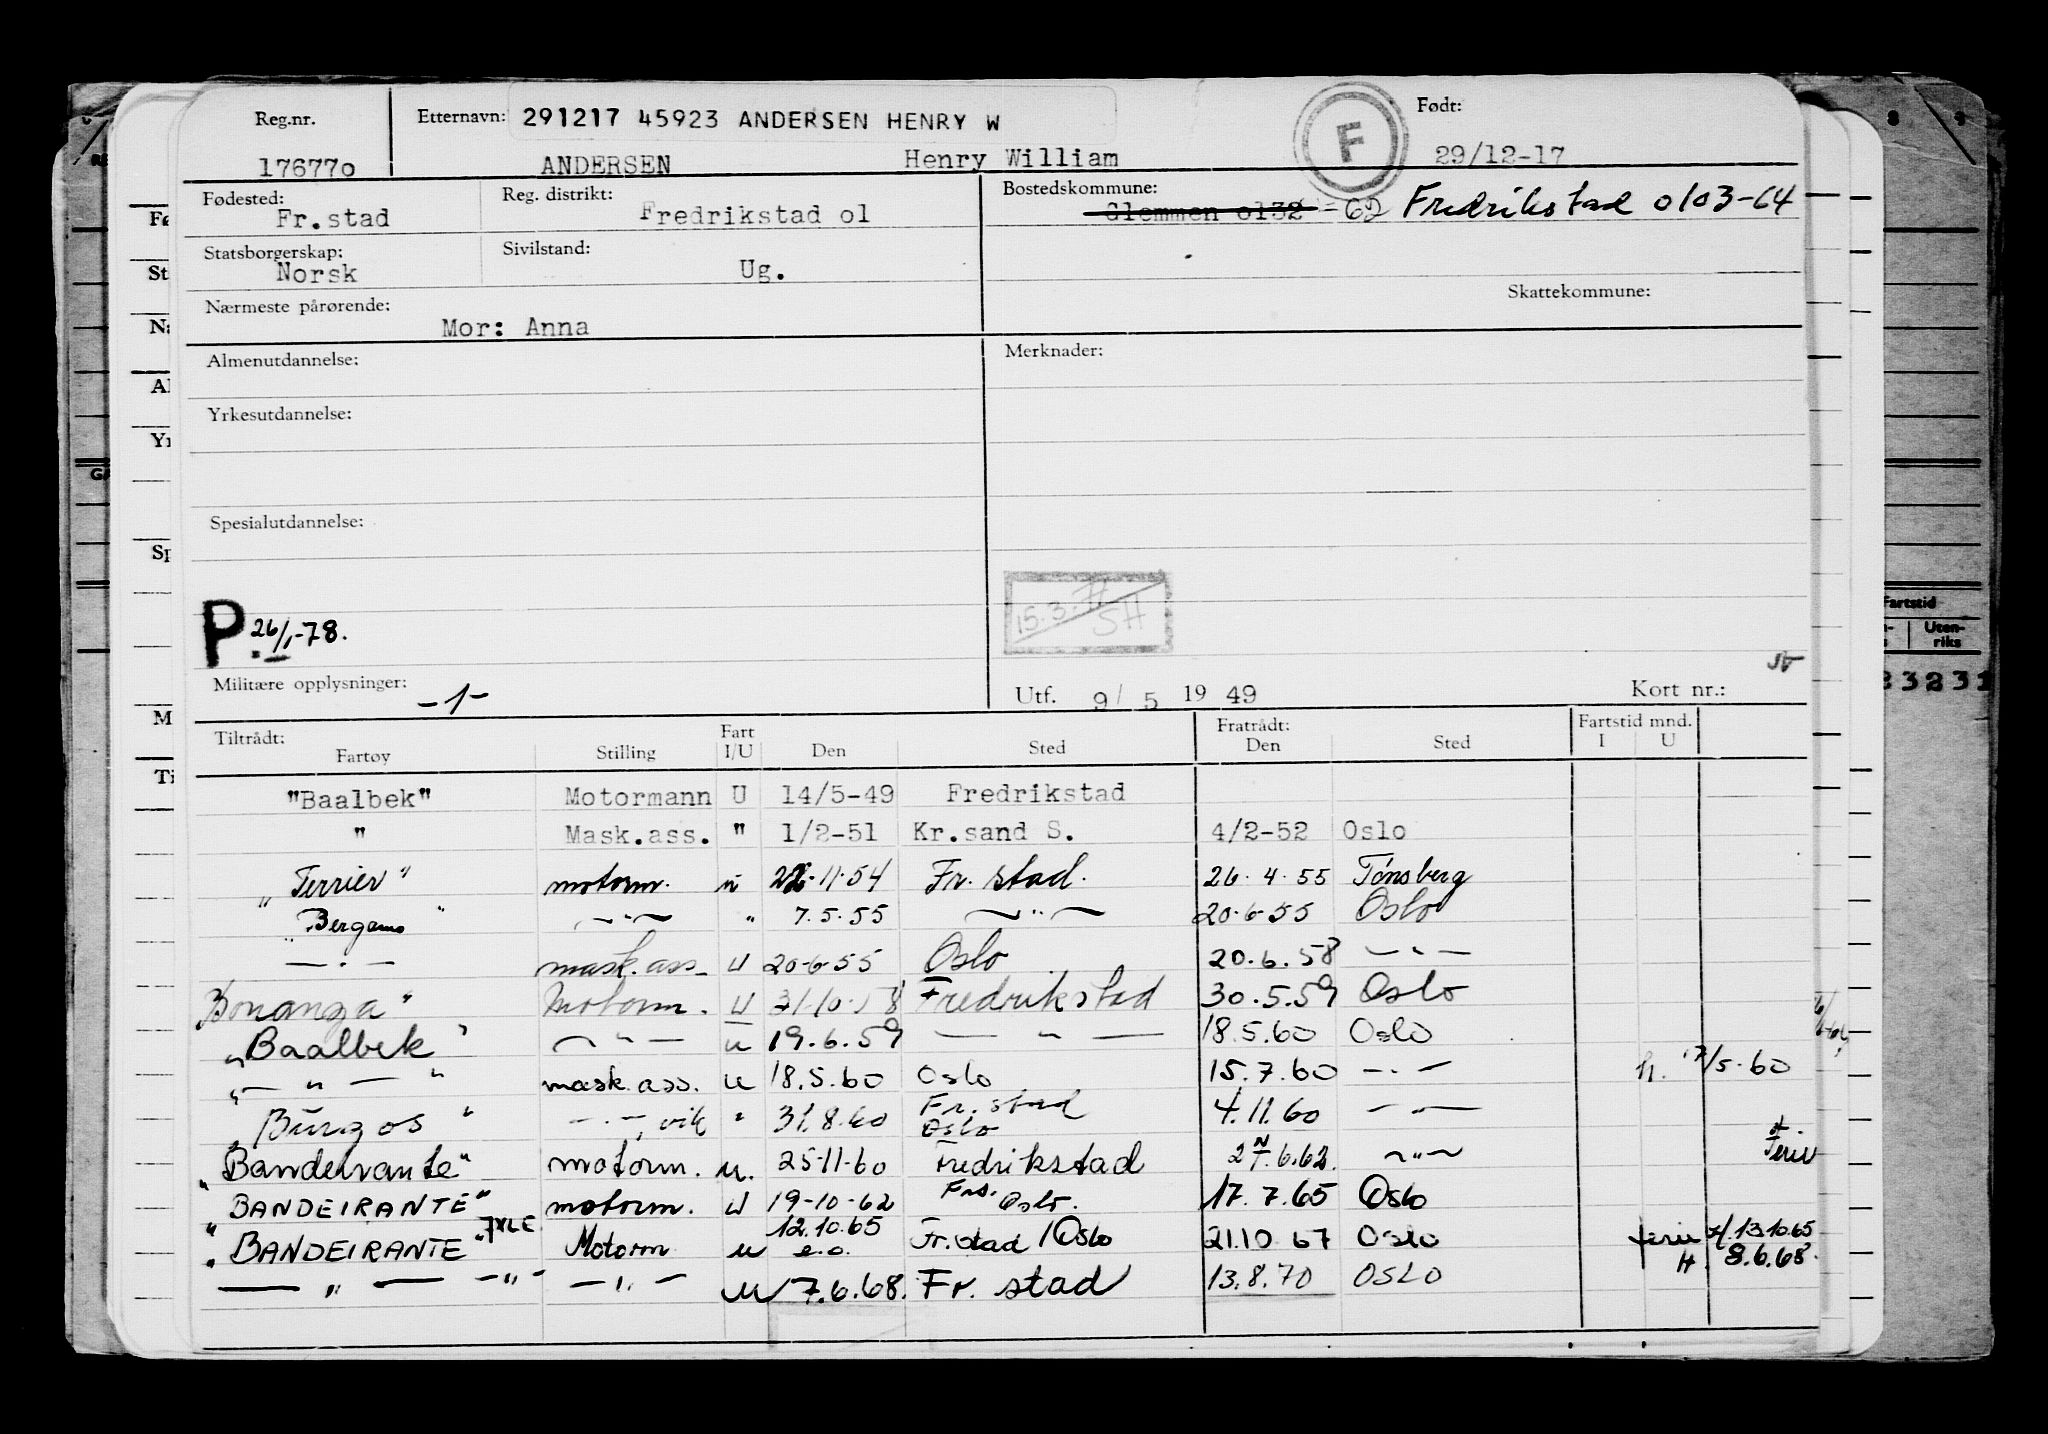 Reg.nr. Etternavn: 291217 45923 ANDERSEN HENRY W F Født:
176770 ANDERSEN Henry William 29/12-17
Fødested: Reg. distrikt: Bostedskommune:
Fr.stad Fredrikstad 01 Glemmen 0132 -62 Fredrikstad 0103-64
Statsborgerskap: Sivilstand:
Norsk Ug.
Skattekommune:
Nærmeste pårørende:
Mor: Anna
Almenutdannelse: Merknader:
Yrkesutdannelse:
Spesialutdannelse:
P. 26/1-78. 15.3.71 SH
Militære opplysninger: -1- Utf. 9/5 1949 Kort nr.:
Tiltrådt: Fart Fratrådt: Fartstid mnd.
Fartøy Stilling I/U Den Sted Den Sted I U
"Baalbek" Motormann U 14/5-49 Fredrikstad
" Mask.ass. " 1/2-51 Kr.sand S. 4/2-52 Oslo
"Terrier" motorm. u 22.11.54 Fr. stad. 26.4.55 Tønsberg
"Bergamo" —"— " 7.5.55 —"— 20.6.55 Oslo
—"— mask.ass. U 20.6.55 Oslo 20.6.58 —"—
Bonanza" Motorm. U 31.10.58 Fredrikstad 30.5.59 Oslo
"Baalbek" —"— u 19.6.59 —"— 18.5.60 Oslo
"— " — " mask.ass. u 18.5.60 Oslo 15.7.60 —"— H. 17/5-60
"Burgos" —"—, vik " 31.8.60 Fr. stad Oslo 4.11.60 —"—
"Bandeirante" motorm. u. 25.11.60 Fredrikstad 27.6.62. —"— Ferie
"BANDEIRANTE" motorm. U 19-10-62 Frd. Oslo. 17.7.65 Oslo
"BANDEIRANTE" JXLE Motorm u 12.10.65 e.o. Fr.stad/Oslo 21.10 67 Oslo ferie H. 13.10.65
— " — —"— —"— u 7.6.68. Fr. stad 13.8.70 OSLO H. 8.6.68.
Fartstid
Uten-
riks